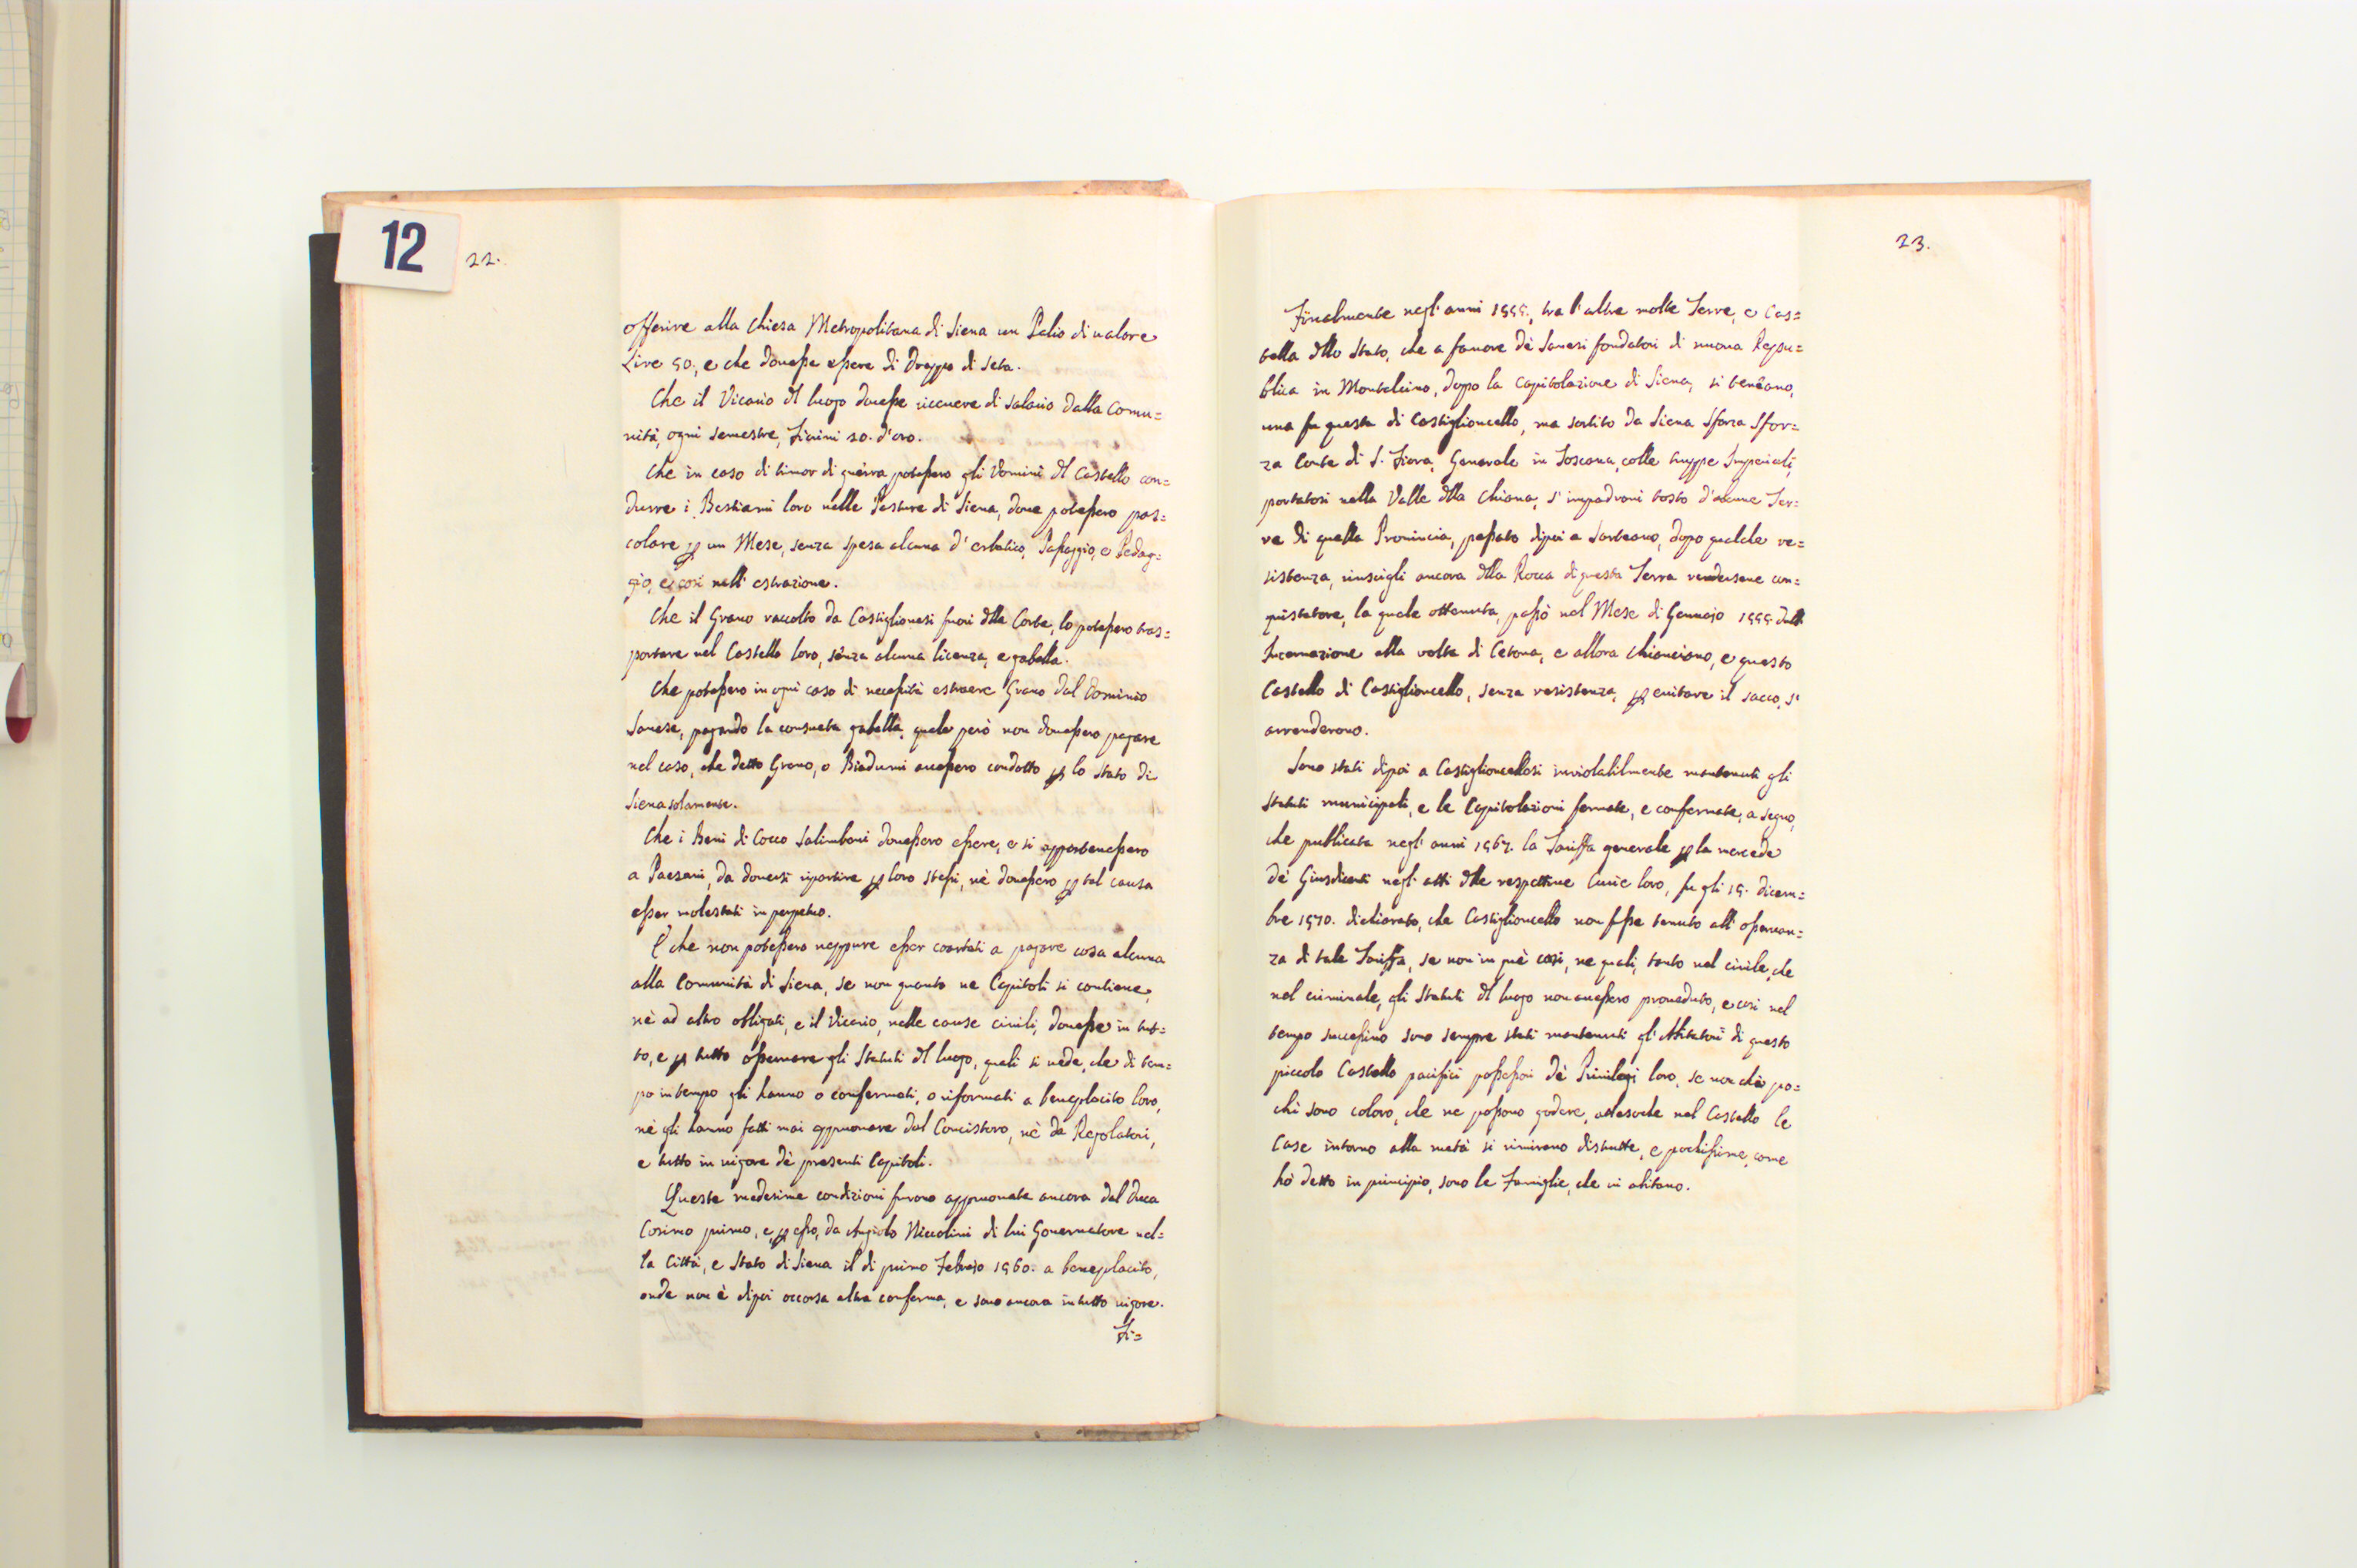 12
22.
offerire alla Chiesa Metropolitana di Siena un Palio di ualore
Lire 50., e che douesse essere di Drappo di Seta.
Che il Vicario dl luogo douesse riceuere di salario dalla Comu=
nità, ogni semestre, Fiorini 20. d'oro.
Che in caso di timor di guerra potessero gli Vomini dl Castello con=
durre i Bestiami loro nelle Pasture di Siena, doue potessero pas=
colare p un Mese, senza spesa alcuna d'erbatico, Passaggio, e Pedag=
gio, e così nell'estrazione.
Che il Grano raccolto da Castiglionesi fuori dlla Corte, lo potessero tras=
portare nel Castello loro, senza alcuna licenza, e gabella.
Che potessero in ogni caso di necessità estraere Grano dal Dominio
Sanese, pagando la consueta gabella, quale però non douessero pagare
nel caso, che detto Grano, o Biadumi auessero condotto p lo Stato di
Siena solamente.
Che i Beni di Cocco Salimbeni douessero essere, e si appartenessero
a Paesani, da douersi ripartire p loro stessi, nè douessero p tal causa
esser molestati in perpetuo.
E che non potessero neppure esser coartati a pagare cosa alcuna
alla Comunità di Siena, se non quanto ne Capitoli si contiene,
nè ad altro obligati, e il Vicario, nelle cause ciuili, douesse in tut=
to, e p tutto osseruare gli Statuti dl luogo, quali si uede, che di tem=
po in tempo gli hanno o confermati, o riformati a beneplacito loro,
nè gli hanno fatti mai appruouare dal Concistoro, nè da Regolatori,
e tutto in uigore dè presenti Capitoli.
Queste medesime condizioni furono appruouate ancora dal Duca
Cosimo primo, e p esso, da Angiolo Niccolini di lui Gouernatore nel=
la Città, e Stato di Siena il dì primo Febraio 1560. a beneplacito,
onde non è dipoi occorsa altra conferma, e sono ancora in tutto uigore.
Fi=
23.
Finalmente negl'anni 1555., tra l'altre molte Terre, e Cas=
tella dllo Stato, che a fauore dè Sanesi fondatori di nuoua Repu=
blica in Montalcino, dopo la capitolazione di Siena, si teneano,
una fu questa di Castiglioncello, ma sortito da Siena Sforza Sfor=
za Conte di S. Fiora, Generale in Toscana, colle truppe Imperiali,
portatosi nella Valle dlla Chiana, s'impadronì tosto d'alcune Ter=
re di quella Prouincia, passato dipoi a Sarteano, dopo qualche re=
sistenza, riuscigli ancora dlla Rocca di questa Terra rendersene con=
quistatore, la quale ottenuta, passò nel Mese di Gennaio 1555. dall'
Incarnazione alla volta di Cetona, e allora Chianciano, e questo
Castello di Castiglioncello, senza resistenza, p euitare il sacco, s'
arrenderono.
Sono stati dipoi a Castiglioncellesi inviolabilmente mantenuti gli
Statuti municipali, e le Capitolazioni fermate, e confermate, a segno,
che publicata negl'anni 1567. la Tariffa generale p la mercede
dè Giusdicenti negl'atti dlle respettiue Curie loro, fu gli 15. dicem=
bre 1570. dichiarato, che Castiglioncello non fosse tenuto all'osseruan=
za di tale Tariffa, se non in què casi, ne quali, tanto nel ciuile, che
nel criminale, gli Statuti dl luogo non auessero proueduto, e così nel
tempo successiuo sono sempre stati mantenuti gl'Abitatori di questo
piccolo Castello pacifici possessori dè Priuilegi loro, se non chè po=
chi sono coloro, che ne possono godere, adesochè nel Castello le
Case intorno alla metà si rimirano distrutte, e pochissime, come
hò detto in principio, sono le Famiglie, che ui abitano.